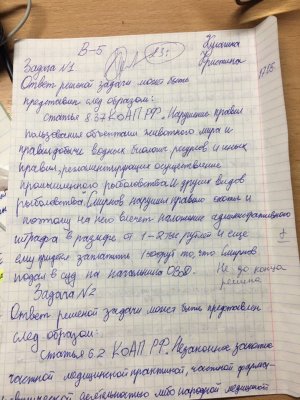 В-5
Кулагина
Кристина
Задача №1
Ответ решеной задачи может быть
представлен след образом:
Статья 8.37 КоАП РФ. Нарушение правил
пользования объектами животного мира и
правил добычи водных биолог. ресурсов и иных
правил, регламентирующих осуществление
промышленного рыболовства и других видов
рыболовства. Смирнов нарушил правило
поэтому на него влечет наложение административного
штрафа в размере от 1-2 тыс рублей и еще
ему придется заплатить то что Смирнов
подал в суд на начальника ОВД.
Не до конца
решена
Задача №2
Ответ решеной задачи может быть представлен
след образом:
Статья 6.2 КоАП РФ. Незаконное занятие
частной медицинской практикой, частной фармац-
евтической деятельностью либо народной медициной